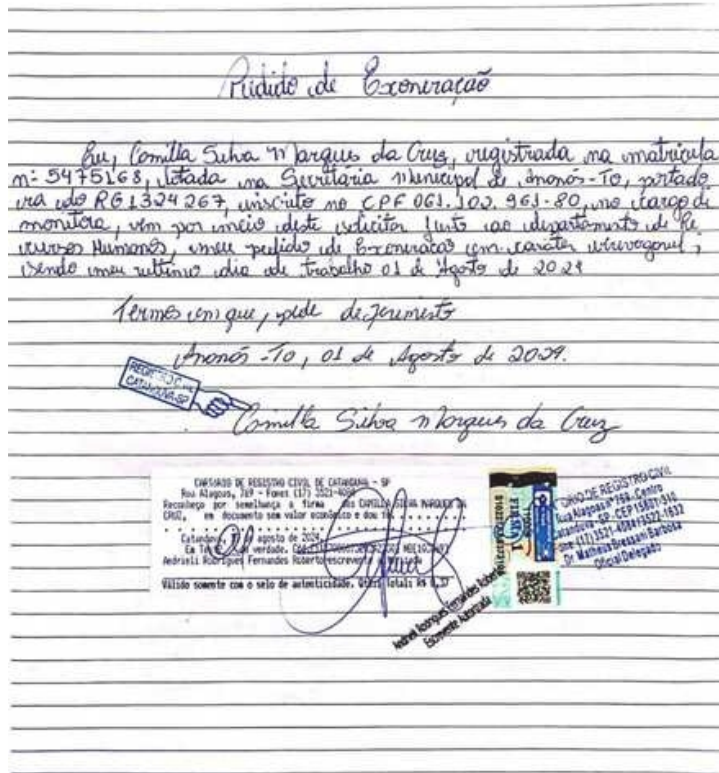 Pedido de Exoneração
Eu, Comilla Silva Marques da Cruz, registrada na matrícula
n: 5475168, lotada na Secretaria Municipal de Ananás-To, portado
ra do RG 1324267, inscrito no CPF 061.102.961-80, no cargo de
monitora, vem por meio deste solicitar junto ao departamento de Re
cursos Humanos, meu pedido de Exoneração em caráter irrevogavel,
sendo meu ultimo dia de trabalho 01 de Agosto de 2024
Termos em que, pede deferimento
Ananás-To, 01 de Agosto de 2024.
REGISTRO CIVIL
CATANDUVA-SP
Comilla Silva Marques da Cruz
CARTÓRIO DE REGISTRO CIVIL DE CATANDUVA - SP
Rua Alagoas, 769 - Fones (17) 3521-4088
Reconheço por semelhança a firma de: CAMILLA SILVA MARQUES DA
CRUZ, em documento sem valor econômico e dou fé.
Catanduva, agosto de 2024.
Em Te da verdade.
Aedrieli Rodrigues Fernandes Roberto escrevente
Válido somente com o selo de autenticidade. Total: R$
FIRMA 1
REGISTRO CIVIL
Rua Alagoas nº 769, Centro
Catanduva-SP, CEP 15801-310
Fone (17) 3521-4088/3522-1632
Dr Matheus Bressani Barbosa
Oficial Delegado
Aedrieli Rodrigues Fernandes Roberto
Escrevente Autorizada